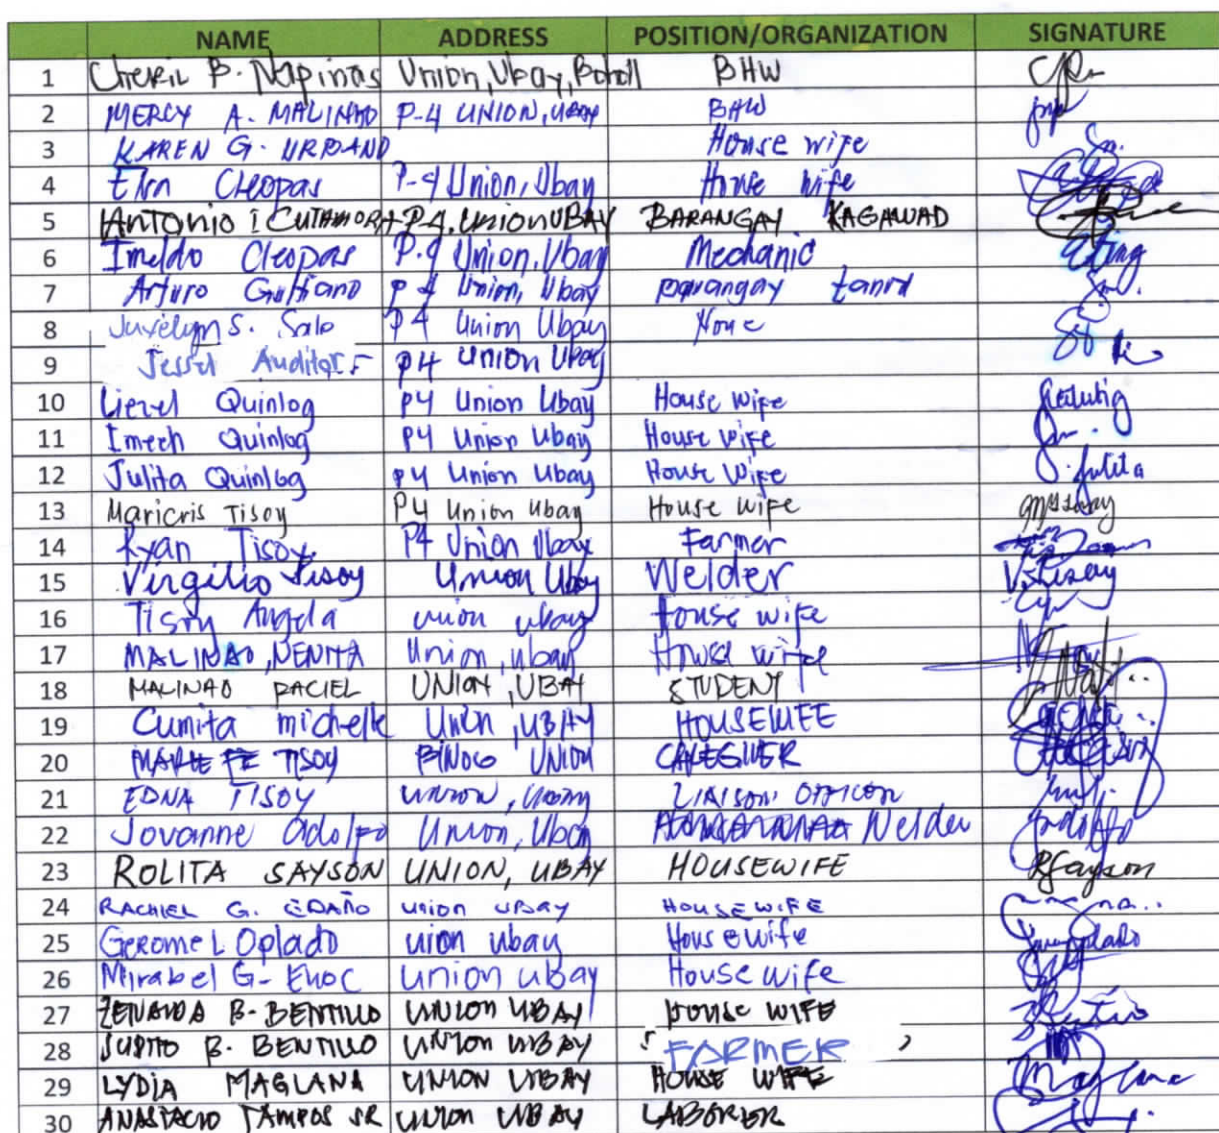 NAME ADDRESS POSITION/ORGANIZATION SIGNATURE
1 Cheril B. Napinas Union, Ubay, Bohol BHW
2 MERCY A. MALINAO P-4 UNION, UBAY BHW
3 KAREN G. URBANO House wife
4 Elva Cleopas P-4 Union, Ubay House wife
5 Antonio I CUTAMORA P-4. Union UBAY BARANGAY KAGAWAD
6 Imeldo Cleopas P-4 Union, Ubay Mechanic
7 Arturo P 4 Union, Ubay barangay tanod
8 Juvelyn S. Salo P 4 Union Ubay None
9 Jessel Auditor P4 Union Ubay
10 Lievel Quinlog P4 Union Ubay House wife
11 Imech Quinlog P4 Union Ubay House wife
12 Julita Quinlog P4 Union Ubay House wife J. Julita
13 Maricris Tisoy P4 Union Ubay House wife
14 Ryan Tisoy P4 Union Ubay Farmer
15 Virgilio Tisoy Union Ubay Welder V. Tisoy
16 Tisoy Angela union ubay House wife
17 MALINAO, NENITA Union, ubay House wife
18 MALINAO RACIEL UNION, UBAY STUDENT
19 Cumita michelle Union, UBAY HOUSEWIFE
20 MARIE FE TISOY BINOGO UNION
21 EDNA TISOY UNION, Ubay LIAISON OFFICER
22 Jovanne Adolfo Union, Ubay Welder
23 ROLITA SAYSON UNION, UBAY HOUSEWIFE RSayson
24 RACHIEL G. EDAÑO union UBAY HOUSEWIFE
25 Geromel Oplado uion ubay Housewife
26 Mirabel G- Enoc union ubay House wife
27 ZENAIDA B. BENTILLO UNION UBAY HOUSE WIFE
28 JUPITO B. BENTILLO UNION UBAY FARMER
29 LYDIA MAGLANA UNION UBAY HOUSE WIFE Maglana
30 ANASTACIO TAMPOS SR UNION UBAY LABORER